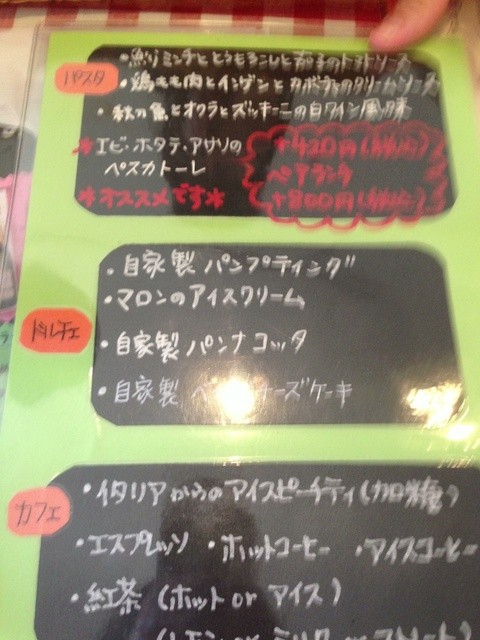 パスタ
・鶏ミンチととうもろこしと茄子のトマトソース
・鶏もも肉とインゲンとカボチャのクリームソース
・秋の魚とオクラとズッキーニの白ワイン風味
＊エビ・ホタテ・アサリの +420円(税込)
ペスカトーレ ペアランチ
＊オススメです＊ +800円(税込)
ドルチェ
・自家製 パンプディング
・マロンのアイスクリーム
・自家製 パンナコッタ
・自家製 チーズケーキ
カフェ
・イタリアからのアイスピーチティ(加糖)
・エスプレッソ ・ホットコーヒー ・アイスコーヒー
・紅茶 (ホット or アイス)
(レモン or ミルク or ストレート)